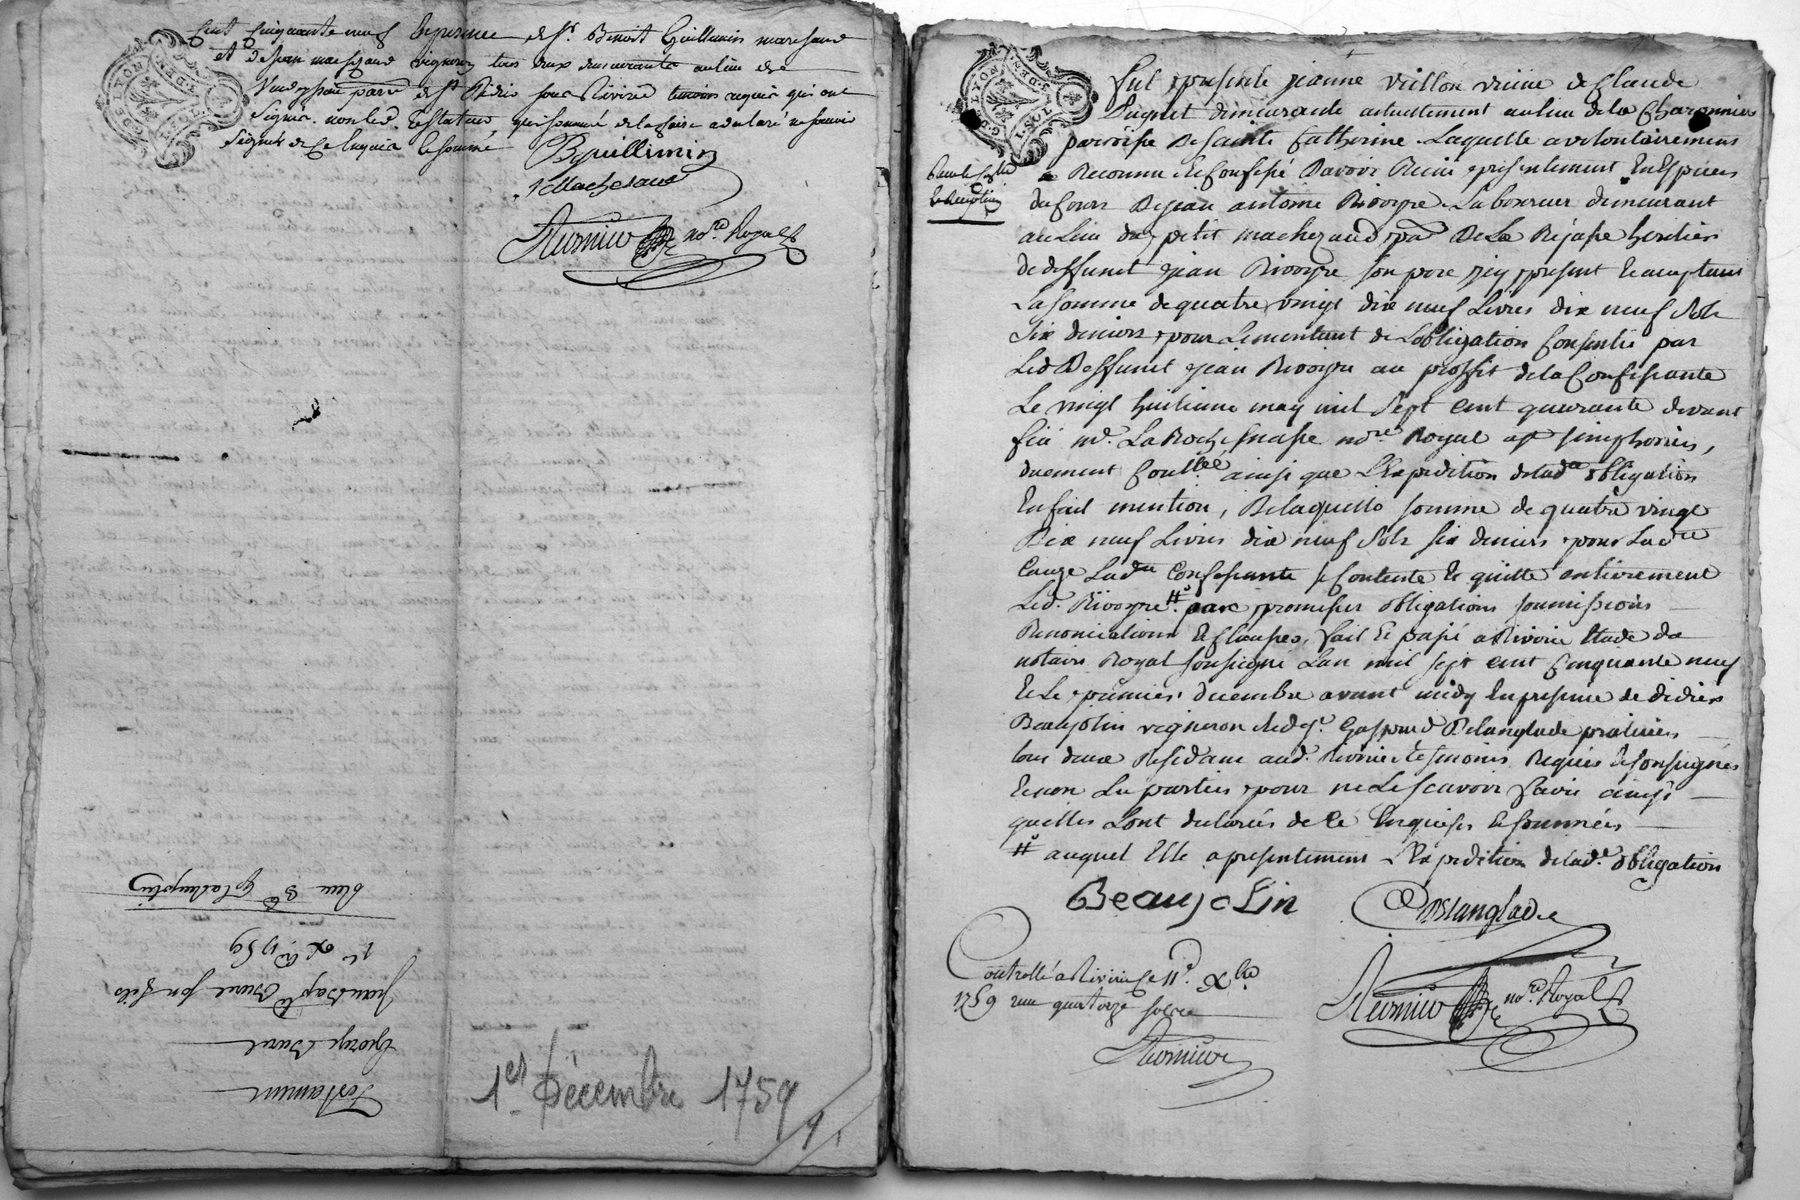 Cent Cinquante neuf En presence de Sr. Benoit Guillimin marchand
et de Jean machezaud vigneron tous deux demeurants au lieu de
parr de St Didier sous Rivirie temoins requis qui ont
Signé. non led. Testateur, qui sommé de le faire a declaré ne scavoir
Signer de ce Enquis et sommé
BGuillimin
Machesaud
no.re Royal
GD. LYON
blen Sd Expedition
1er Xbre 1759
Jean Bapte Burel son fils
George Burel
Testament
1er Décembre 1759
9.
GD. LYON
Fut presente jeanne Villon veuve de Claude
demeurante actuellement au lieu de la Charonnier
parroisse De Sainte Catherine. Laquelle a volontairement
Reconnu et Confessé D'avoir Receu presentement En Especes
du Cours De jean antoine Rivoyre Laboureur demeurant
au Lieu du petit machezaud par De La Rejasse heritier
de deffunt jean Rivoyre son pere icy present Et acceptant
La Somme de quatre vingt dix neuf Livres dix neuf Sols
Six deniers pour Le montant de L'obligation Consentie par
Led Deffunt jean Rivoyre au proffit de la Confessante
Le vingt huitieme may mil Sept Cent quarante devant
feu me. La Roche nore Royal a St Simphorien,
duement Coullée ainsi que L'Expedition de lade obligation
En fait mention, De laquelle somme de quatre vingt
Dix neuf Livres dix neuf Sols six deniers pour Ladte
Cauze Ladte Confessante se Contente Et quitte entierement
Led. Rivoyre # par promesses obligations soumissions
Renonciations Et Clauses, fait Et passé a Rivirie Etude du
notaire Royal soussigné L'an mil sept cent Cinquante neuf
Et Le premier decembre avant midy En presence de didier
Beaujolin vigneron et de Sr. Gaspard Delanglade praticien
tous deux Residans aud. Rivirie temoins Requis Et soussignés
Et non Les parties pour ne Le scavoir faire ainsi
qu'elles L'ont declarés de ce Enquises Et sommées
# auquel Elle a presentement L'Expedition de lad.e obligation
Beaujolin
Delanglade
Controllé a Rivirie Le 11e. Xbre
1759 reçu quatorze sols
no.re Royal